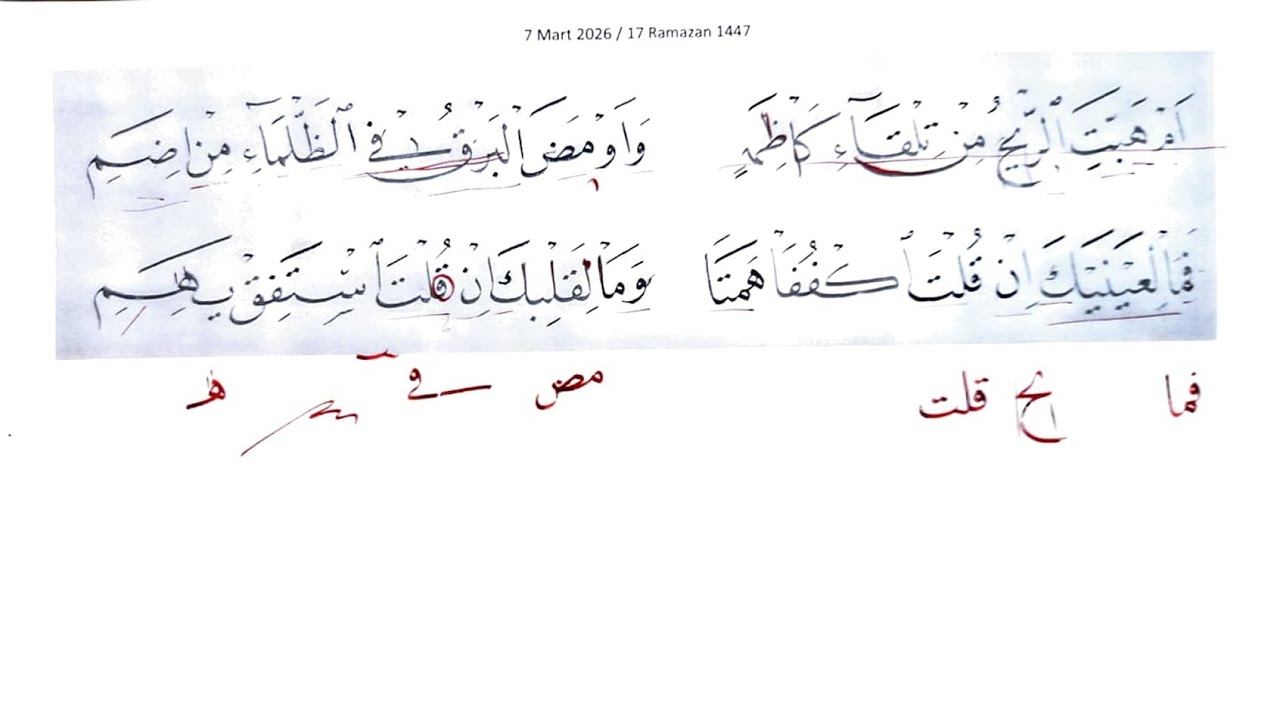 7 Mart 2026 / 17 Ramazan 1447
اَمْ هَبَّتِ الرِّيحُ مِنْ تِلْقَٓاءِ كَاظِمَةٍ وَاَوْمَضَ الْبَرْقُ فِي الظَّلْمَٓاءِ مِنْ اِضَمِ
فَمَا لِعَيْنَيْكَ اِنْ قُلْتَ اكْفُفَا هَمَتَا وَمَا لِقَلْبِكَ اِنْ قُلْتَ اسْتَفِقْ يَهِمِ
فما يح قلت مض في ه